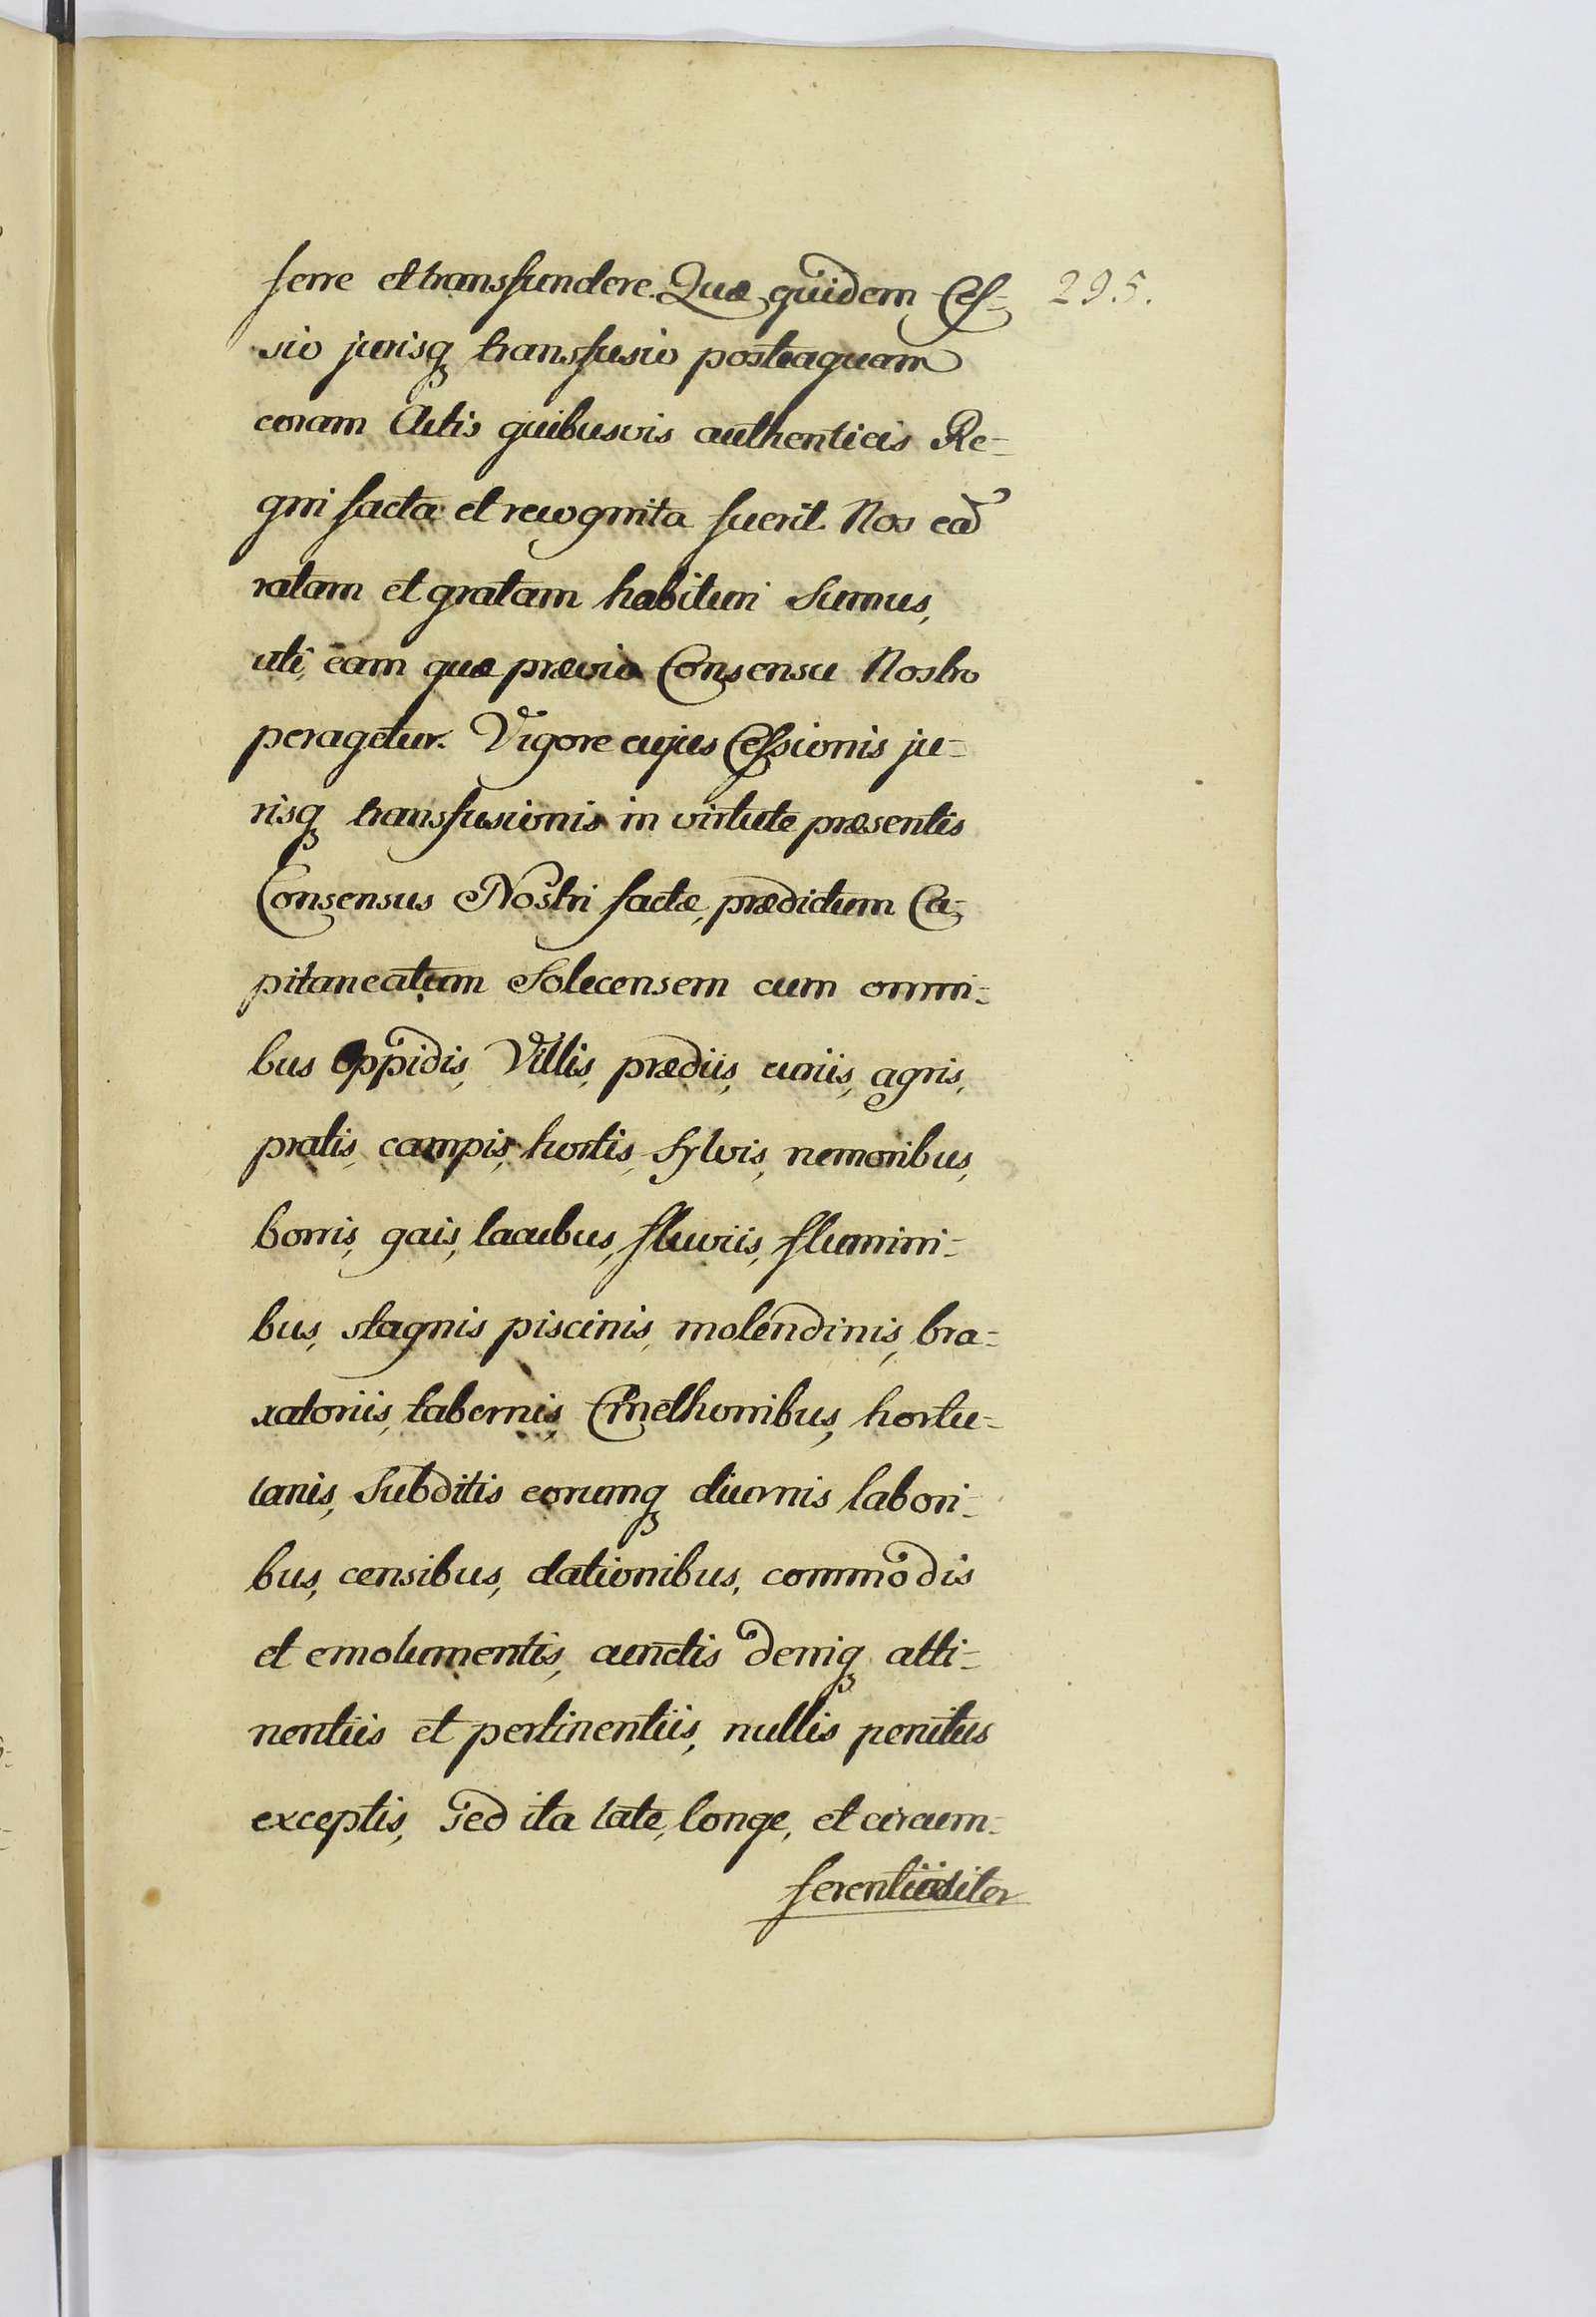 ferre et transfundere. Quæ quidem Ces-
295.
sio jurisq transfusio posteaquam
coram Actis quibusvis authenticis Re-
gni facta et recognita fuerit. Nos ead
ratam et gratam habituri sumus,
uti eam quæ prævio Consensu Nostro
peragetur. Vigore cujus Cessionis ju-
risq transfusionis in virtute præsentis
Consensus Nostri factæ, prædictum Ca-
pitaneatum Solecensem cum omni-
bus Oppidis, Villis, prædiis, curiis, agris,
pratis, campis, hortis, sylvis, nemoribus,
borris, gais, lacubus, fluviis, flumini-
bus, stagnis piscinis, molendinis, bra-
xatoriis, tabernis, Cmethonibus, hortu-
lanis, subditis eorumq diurnis labori-
bus, censibus, dationibus, commodis
et emolumentis, cunctis deniq atti-
nentiis et pertinentiis, nullis penitus
exceptis, sed ita late, longe, et circum-